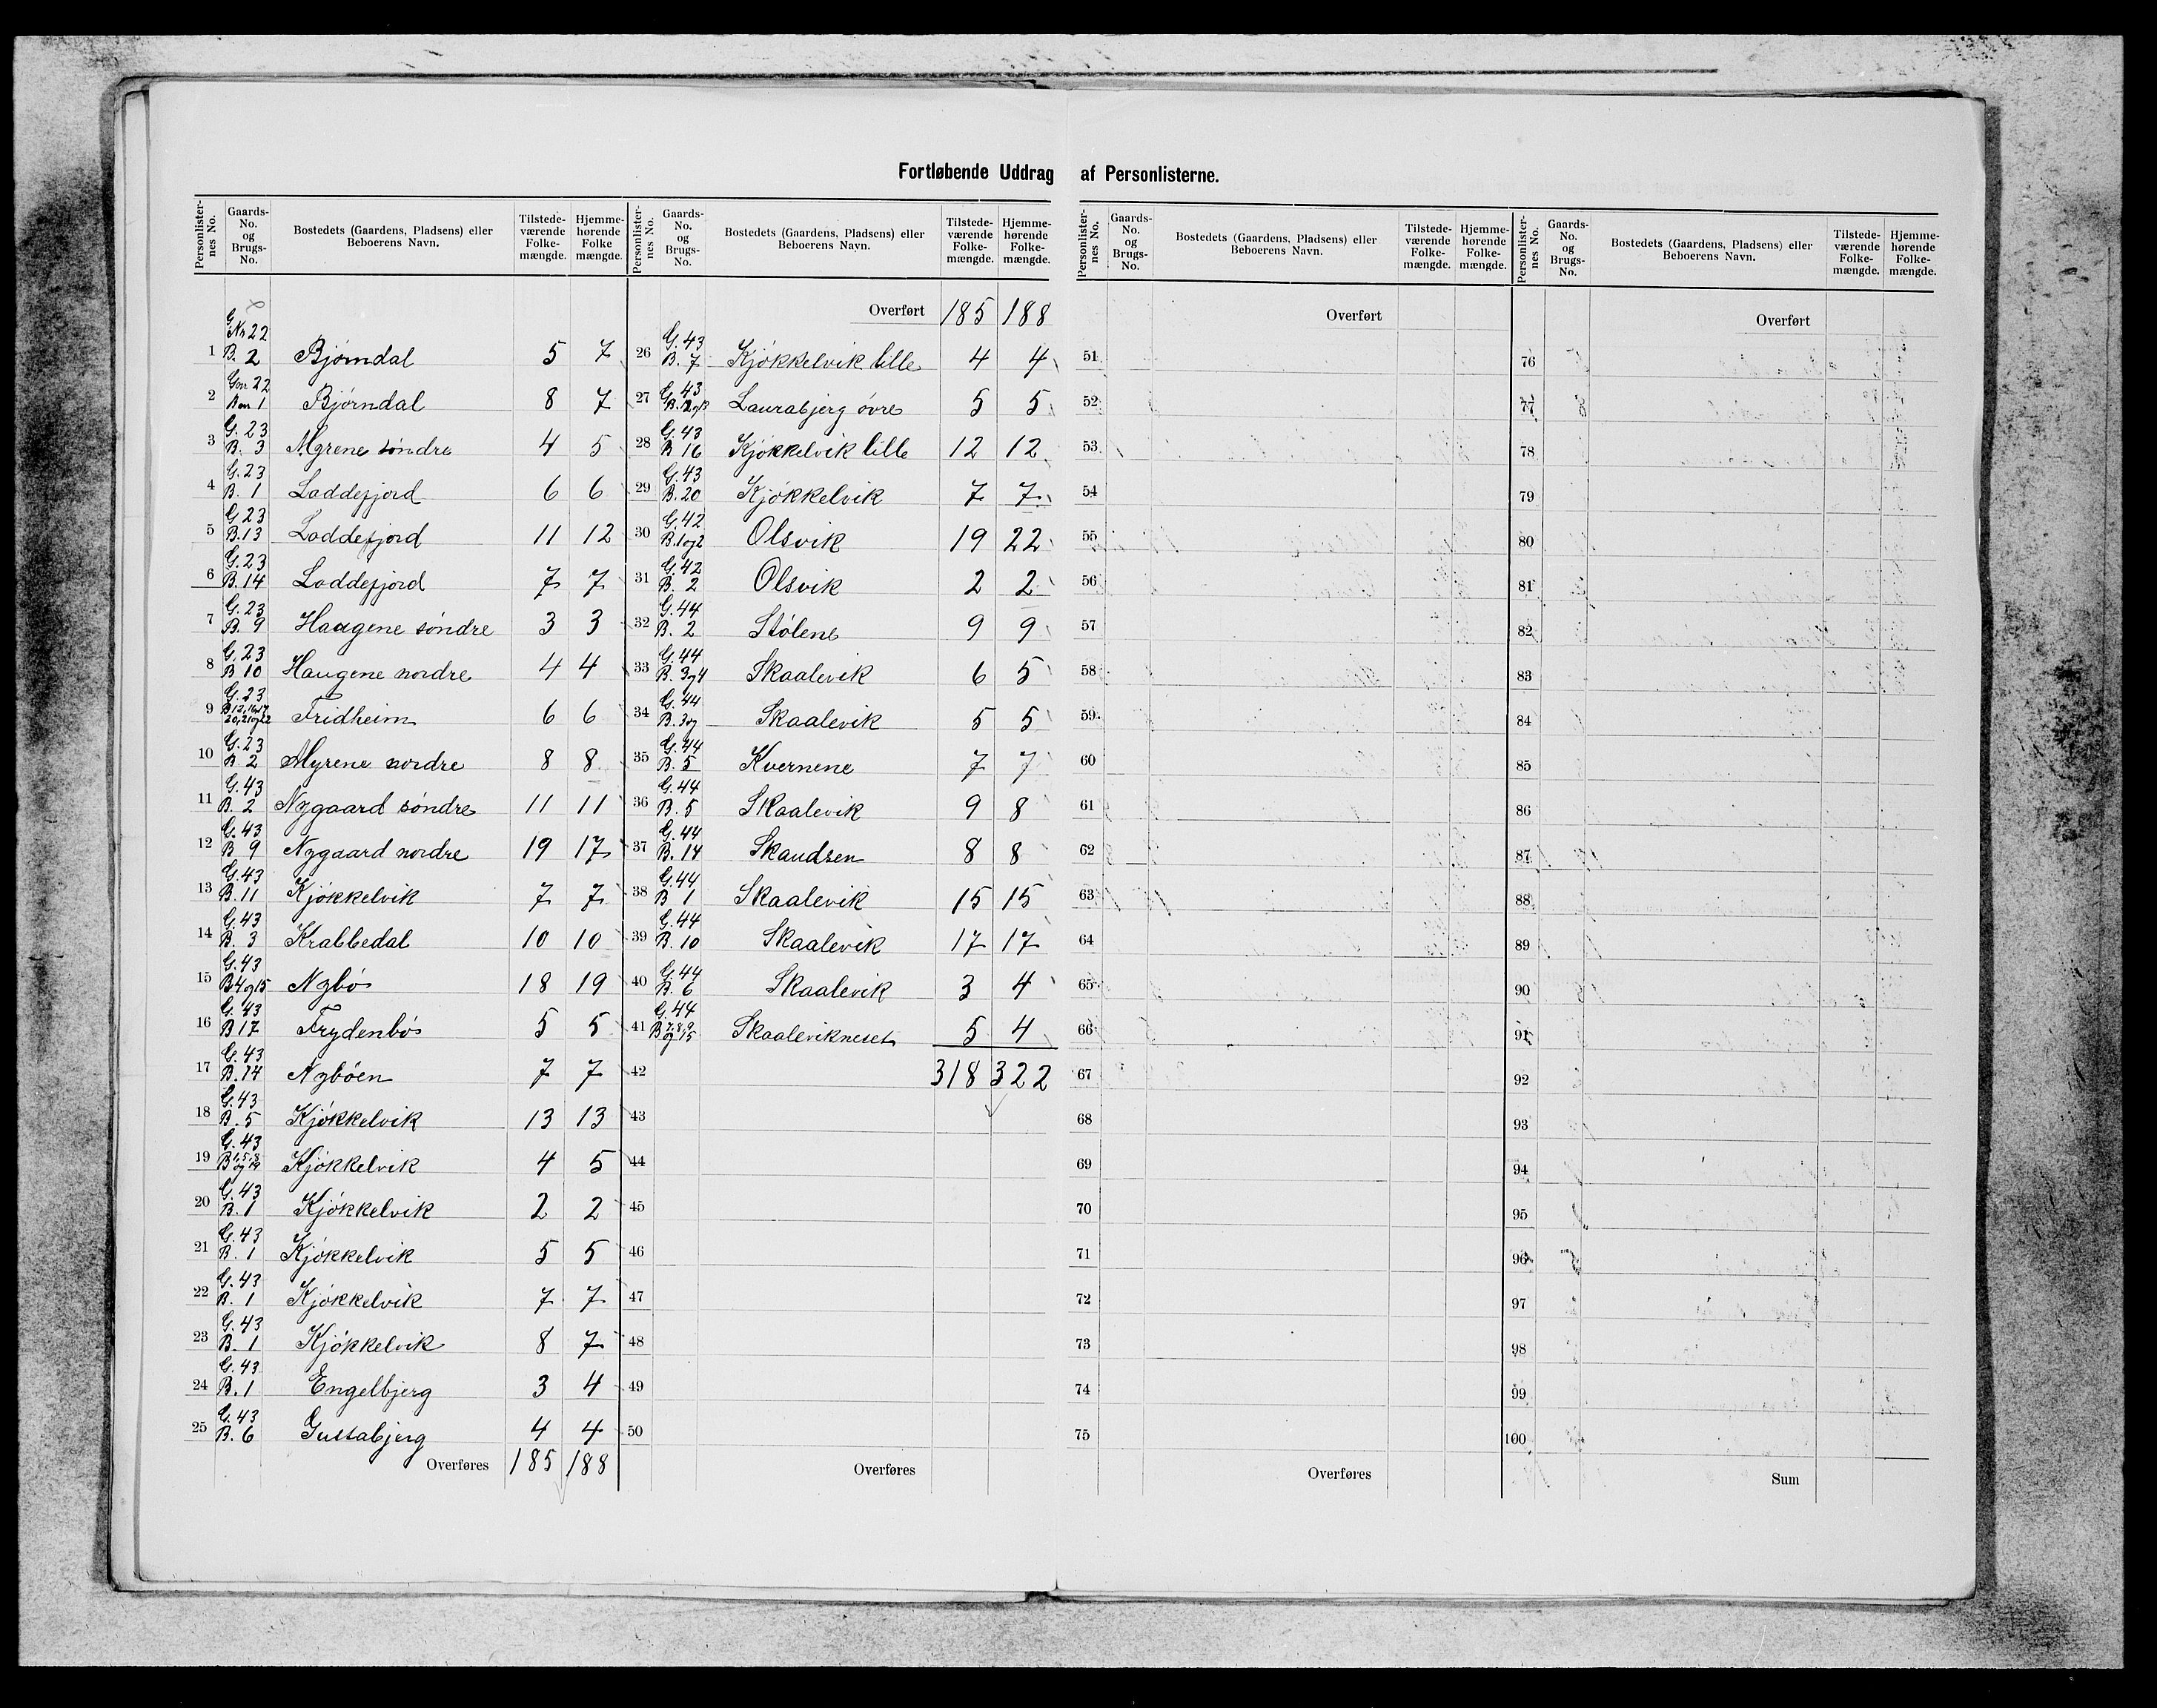 Fortløbende Uddrag af Personlisterne.
Personlister-nes No. | Gaards-No. og Brugs-No. | Bostedets (Gaardens, Pladsens) eller Beboerens Navn. | Tilstede-værende Folke-mængde. | Hjemme-hørende Folke mængde.
1 | G. No 22 B. 2 | Bjørndal | 5 | 7
2 | Gnr 22 Bnr 1 | Bjørndal | 8 | 7
3 | G. 23 B. 3 | Myrene søndre | 4 | 5
4 | G. 23 B. 1 | Loddefjord | 6 | 6
5 | G. 23 B. 13 | Loddefjord | 11 | 12
6 | G. 23 B. 14 | Loddefjord | 7 | 7
7 | G. 23 B. 9 | Haugene søndre | 3 | 3
8 | G. 23 B 10 | Haugene nordre | 4 | 4
9 | G. 23 B 12, 16, 17 20, 21 og 22 | Fridheim | 6 | 6
10 | G. 23 B. 2 | Myrene nordre | 8 | 8
11 | G. 43 B. 2 | Nygaard søndre | 11 | 11
12 | G. 43 B 9 | Nygaard nordre | 19 | 17
13 | G. 43 B. 11 | Kjøkkelvik | 7 | 7
14 | G. 43 B. 3 | Krabbedal | 10 | 10
15 | G. 43 B 4 og 15 | Nybø | 18 | 19
16 | G. 43 B 17 | Frydenbø | 5 | 5
17 | G. 43 B. 14 | Nybøen | 7 | 7
18 | G. 43 B. 5 | Kjøkkelvik | 13 | 13
19 | G. 43 B 1, 5, 8 og 19 | Kjøkkelvik | 4 | 5
20 | G. 43 B. 1 | Kjøkkelvik | 2 | 2
21 | G. 43 B. 1 | Kjøkkelvik | 5 | 5
22 | G. 43 B. 1 | Kjøkkelvik | 7 | 7
23 | G. 43 B. 1 | Kjøkkelvik | 8 | 7
24 | G. 43 B. 1 | Engelbjerg | 3 | 4
25 | G. 43 B. 6 | Gustabjerg | 4 | 4
Overføres | 185 | 188
Personlister-nes No. | Gaards-No. og Brugs-No. | Bostedets (Gaardens, Pladsens) eller Beboerens Navn. | Tilstede-værende Folke-mængde. | Hjemme-hørende Folke-mængde.
Overført | 185 | 188
26 | G. 43 B. 7 | Kjøkkelvik lille | 4 | 4
27 | G. 43 B. 12 og 13 | Laurabjerg øvre | 5 | 5
28 | G. 43 B 16 | Kjøkkelvik lille | 12 | 12
29 | G. 43 B. 20 | Kjøkkelvik | 7 | 7
30 | G. 42 B. 1 og 2 | Olsvik | 19 | 22
31 | G. 42 B. 2 | Olsvik | 2 | 2
32 | G. 44 B. 2 | Stølene | 9 | 9
33 | G. 44 B. 3 og 4 | Skaalevik | 6 | 5
34 | G. 44 B. 3 og | Skaalevik | 5 | 5
35 | G. 44 B. 5 | Kvernene | 7 | 7
36 | G. 44 B. 5 | Skaalevik | 9 | 8
37 | G. 44 B. 14 | Skaudsen | 8 | 8
38 | G. 44 B 1 | Skaalevik | 15 | 15
39 | G. 44 B. 10 | Skaalevik | 17 | 17
40 | G. 44 B. 6 | Skaalevik | 3 | 4
41 | G. 44 B 7, 8, 9 og 15 | Skaalevikneset | 5 | 4
42 | 318 | 322
43
44
45
46
47
48
49
50
Overføres
Personlister-nes No. | Gaards-No. og Brugs-No. | Bostedets (Gaardens, Pladsens) eller Beboerens Navn. | Tilstede-værende Folke-mængde. | Hjemme-hørende Folke-mængde.
Overført
51
52
53
54
55
56
57
58
59
60
61
62
63
64
65
66
67
68
69
70
71
72
73
74
75
Overføres
Personlister-nes No. | Gaards-No. og Brugs-No. | Bostedets (Gaardens, Pladsens) eller Beboerens Navn. | Tilstede-værende Folke-mængde. | Hjemme-hørende Folke-mængde.
Overført
76
77
78
79
80
81
82
83
84
85
86
87
88
89
90
91
92
93
94
95
96
97
98
99
100
Sum